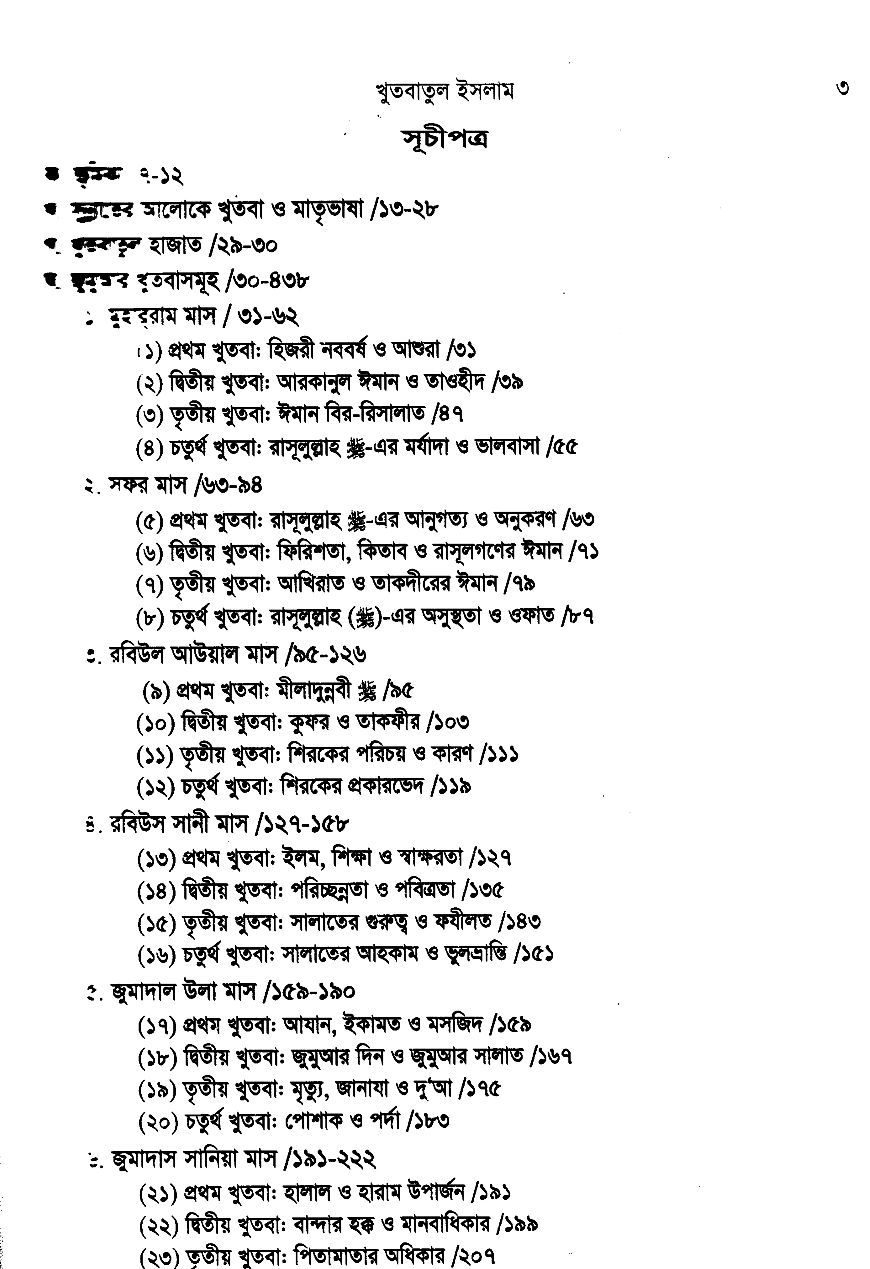 খুতবাতুল ইসলাম ৩
সূচীপত্র
৭-১২
আলোকে খুতবা ও মাতৃভাষা /১৩-২৮
হাজাত /২৯-৩০
খুতবাসমূহ /৩০-৪৩৮
মুহাররাম মাস / ৩১-৬২
(১) প্রথম খুতবা: হিজরী নববর্ষ ও আশুরা /৩১
(২) দ্বিতীয় খুতবা: আরকানুল ঈমান ও তাওহীদ /৩৯
(৩) তৃতীয় খুতবা: ঈমান বির-রিসালাত /৪৭
(৪) চতুর্থ খুতবা: রাসূলুল্লাহ ﷺ-এর মর্যাদা ও ভালবাসা /৫৫
২. সফর মাস /৬৩-৯৪
(৫) প্রথম খুতবা: রাসূলুল্লাহ ﷺ-এর আনুগত্য ও অনুকরণ /৬৩
(৬) দ্বিতীয় খুতবা: ফিরিশতা, কিতাব ও রাসূলগণের ঈমান /৭১
(৭) তৃতীয় খুতবা: আখিরাত ও তাকদীরের ঈমান /৭৯
(৮) চতুর্থ খুতবা: রাসূলুল্লাহ (ﷺ)-এর অসুস্থতা ও ওফাত /৮৭
৩. রবিউল আউয়াল মাস /৯৫-১২৬
(৯) প্রথম খুতবা: মীলাদুন্নবী ﷺ /৯৫
(১০) দ্বিতীয় খুতবা: কুফর ও তাকফীর /১০৩
(১১) তৃতীয় খুতবা: শিরকের পরিচয় ও কারণ /১১১
(১২) চতুর্থ খুতবা: শিরকের প্রকারভেদ /১১৯
৪. রবিউস সানী মাস /১২৭-১৫৮
(১৩) প্রথম খুতবা: ইলম, শিক্ষা ও স্বাক্ষরতা /১২৭
(১৪) দ্বিতীয় খুতবা: পরিচ্ছন্নতা ও পবিত্রতা /১৩৫
(১৫) তৃতীয় খুতবা: সালাতের গুরুত্ব ও ফযীলত /১৪৩
(১৬) চতুর্থ খুতবা: সালাতের আহকাম ও ভুলভ্রান্তি /১৫১
জুমাদাল উলা মাস /১৫৯-১৯০
(১৭) প্রথম খুতবা: আযান, ইকামত ও মসজিদ /১৫৯
(১৮) দ্বিতীয় খুতবা: জুমুআর দিন ও জুমুআর সালাত /১৬৭
(১৯) তৃতীয় খুতবা: মৃত্যু, জানাযা ও দু'আ /১৭৫
(২০) চতুর্থ খুতবা: পোশাক ও পর্দা /১৮৩
জুমাদাস সানিয়া মাস /১৯১-২২২
(২১) প্রথম খুতবা: হালাল ও হারাম উপার্জন /১৯১
(২২) দ্বিতীয় খুতবা: বান্দার হক্ক ও মানবাধিকার /১৯৯
(২৩) তৃতীয় খুতবা: পিতামাতার অধিকার /২০৭